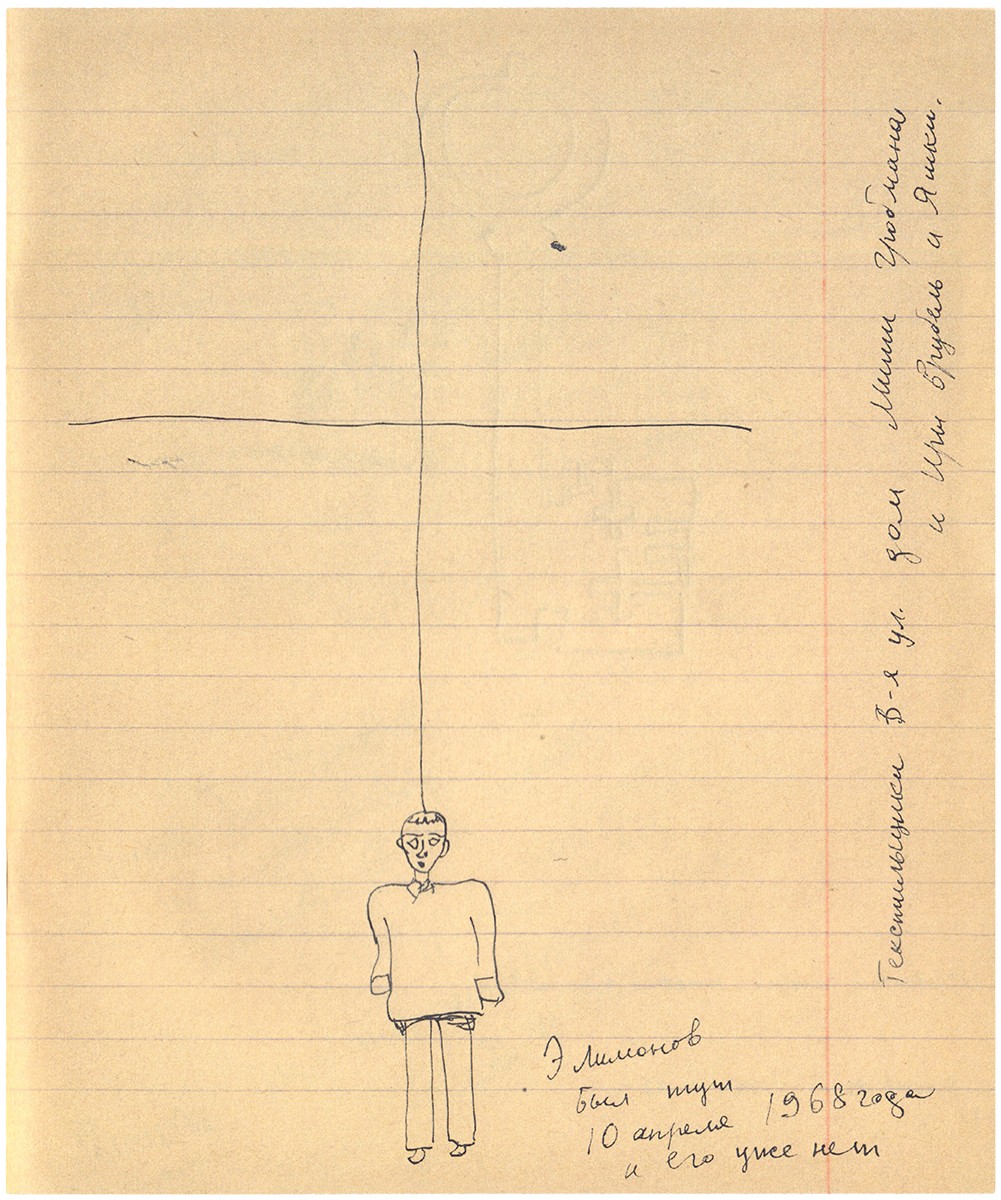 Текстильщики 8-я ул. дом Миши Гробмана
и Иры Врубель и Яшки.
Э Лимонов
был тут
10 апреля 1968 года
и его уже нет